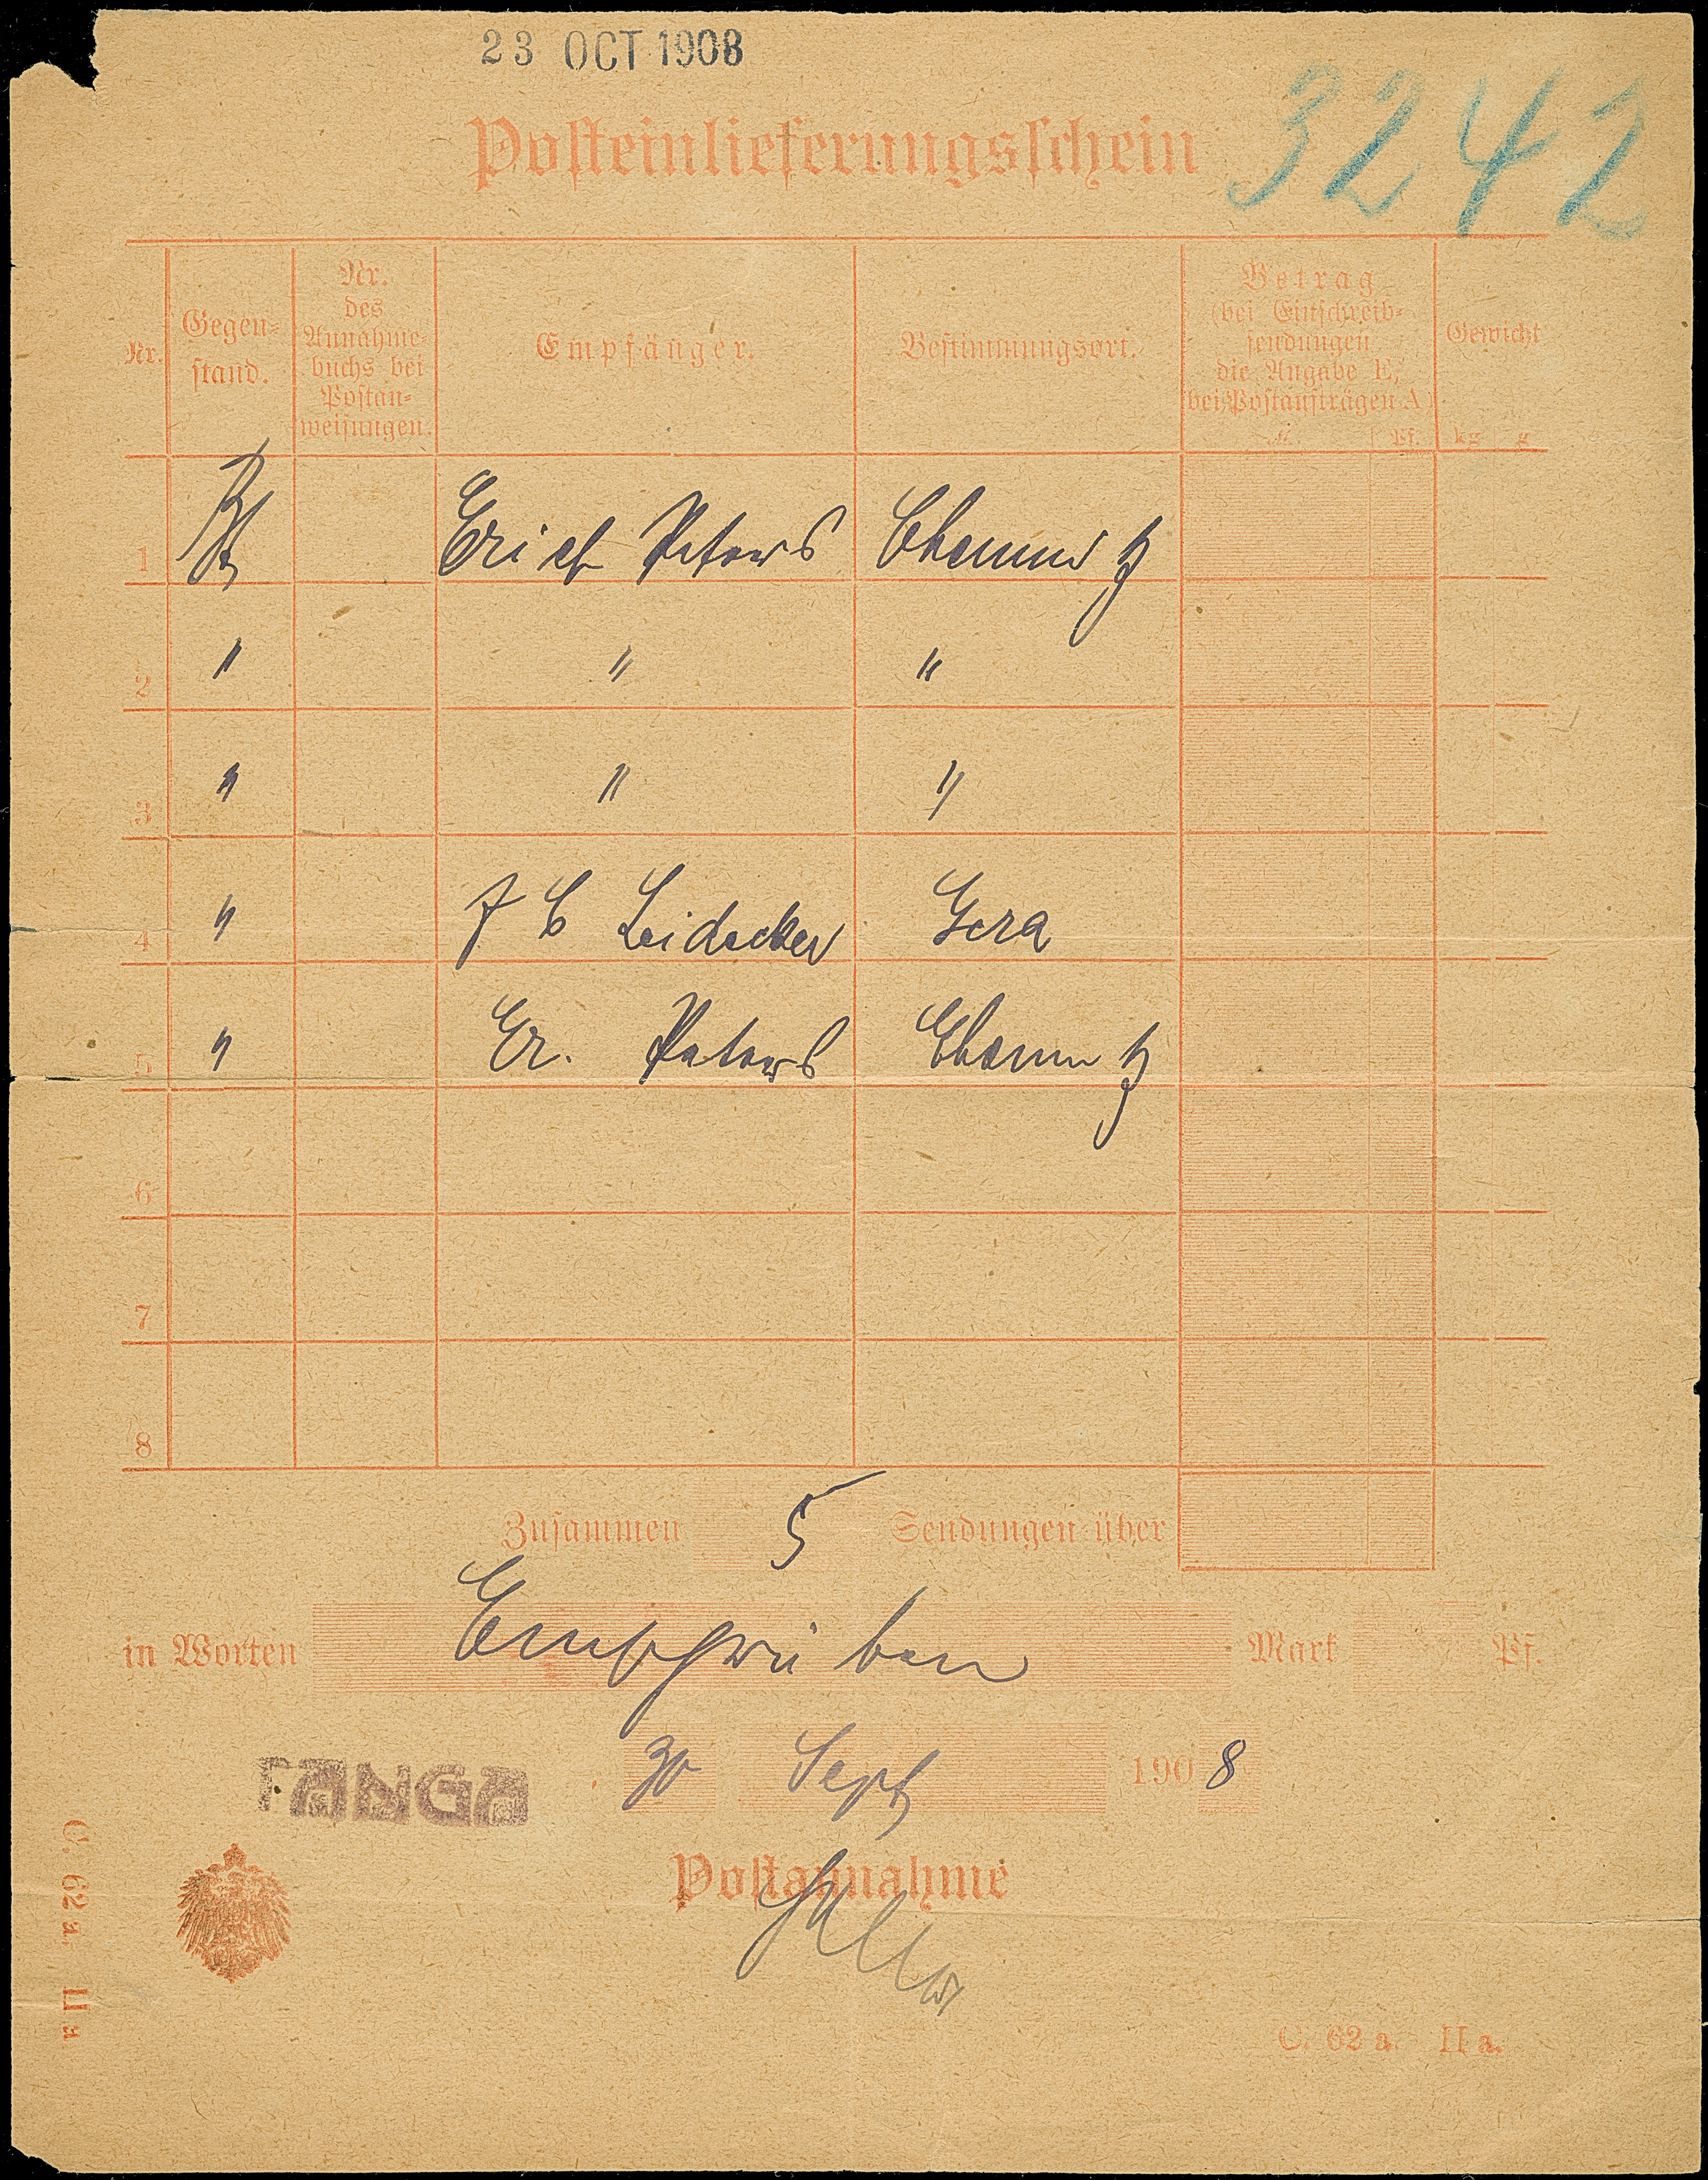 23 OCT 1908
3242
Posteinlieferungsschein
Nr.
Gegen-
stand.
Nr.
des
Annahme-
buchs bei
Postan-
weisungen.
Empfänger.
Bestimmungsort.
Betrag
(bei Einschreib-
sendungen
die Angabe E,
bei Postaufträgen A)
M. Pf.
Gewicht
kg g
1 Erich Peters Chemnitz
2 " " "
3 " " "
4 " F C Leidecker Gera
5 " Er. Peters Chemnitz
6
7
8
Zusammen 5 Sendungen über
in Worten Mark Pf.
TANGA 30 Sept 1908
Postannahme
C. 62 a. II a.
C. 62 a. II a.